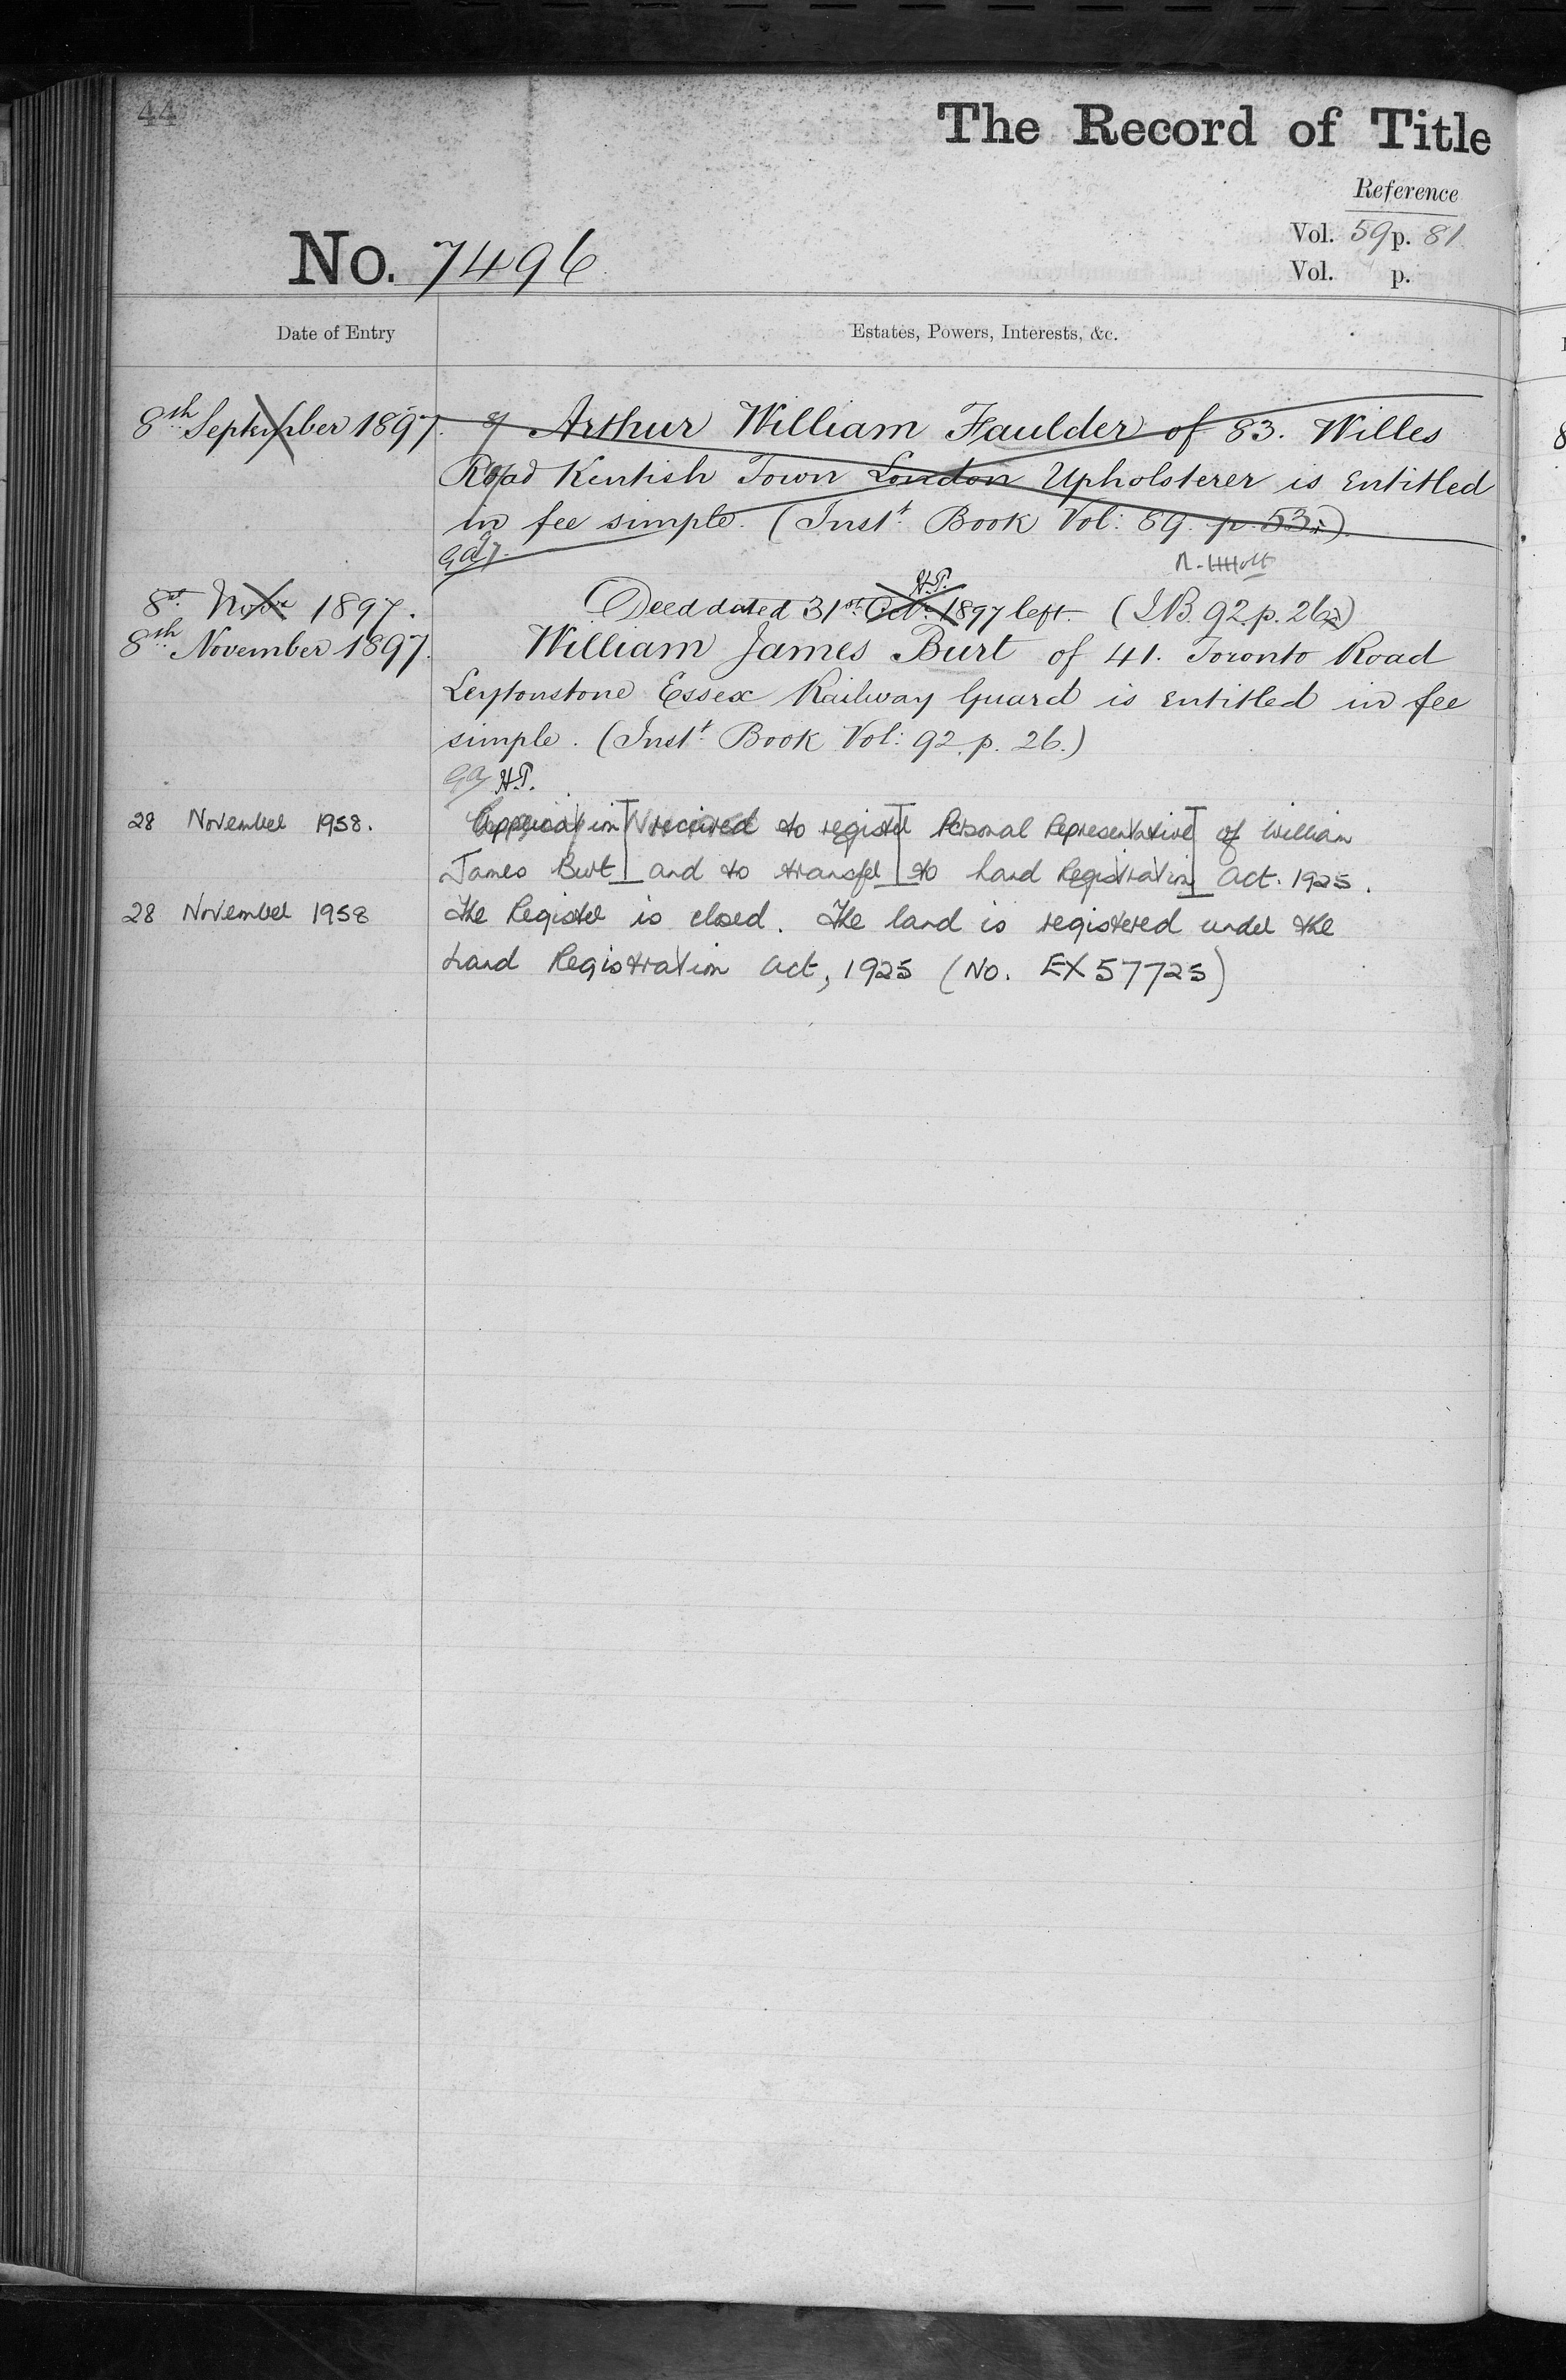 44
The Record of Title
Reference
Vol. 59 p. 81
Vol. p.
No. 7496
Date of Entry
Estates, Powers, Interests, &c.
8th September 1897. Arthur William Faulder of 83. Willes
Road Kentish Town London Upholsterer is entitled
in fee simple. (Inst. Book Vol: 89. p. 53.)
H.P.
8th Novr 1897. Deed dated 31st Oct. 1897 left. (I.B. 92. p. 26)
8th November 1897. William James Burt of 41. Toronto Road
Leytonstone Essex Railway Guard is entitled in fee
simple. (Inst. Book Vol: 92. p. 26.)
H.P.
28 November 1958. Application received to register Personal Representative of William
James Burt and to transfer to Land Registration Act. 1925.
28 November 1958 The Register is closed. The land is registered under the
Land Registration Act, 1925 (No. EX57725)